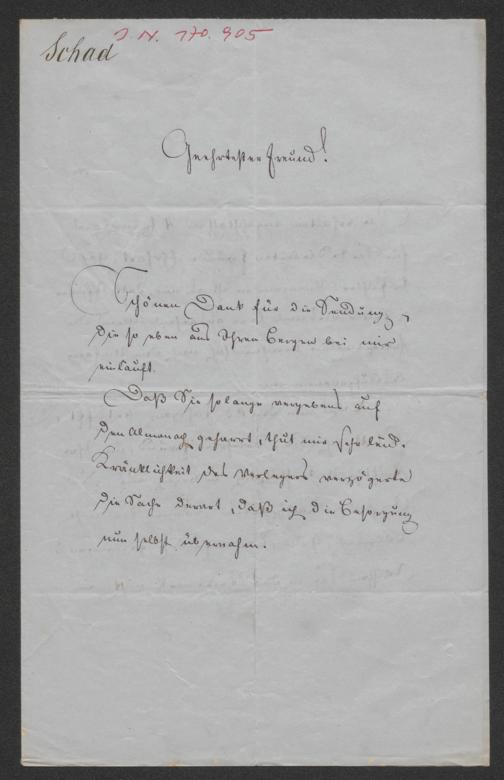 J. N. 170.905
Schad
Geehrtester Freund!
Schönen Dank für die Sendung,
die so eben aus Ihren Bergen bei mir
einläuft.
Daß Sie so lange vergebens auf
den Almanach geharrt, thut mir sehr leid.
Kränklichkeit des Verlegers verzögerte
die Sache derart, daß ich die Besorgung
nun selbst übernahm.